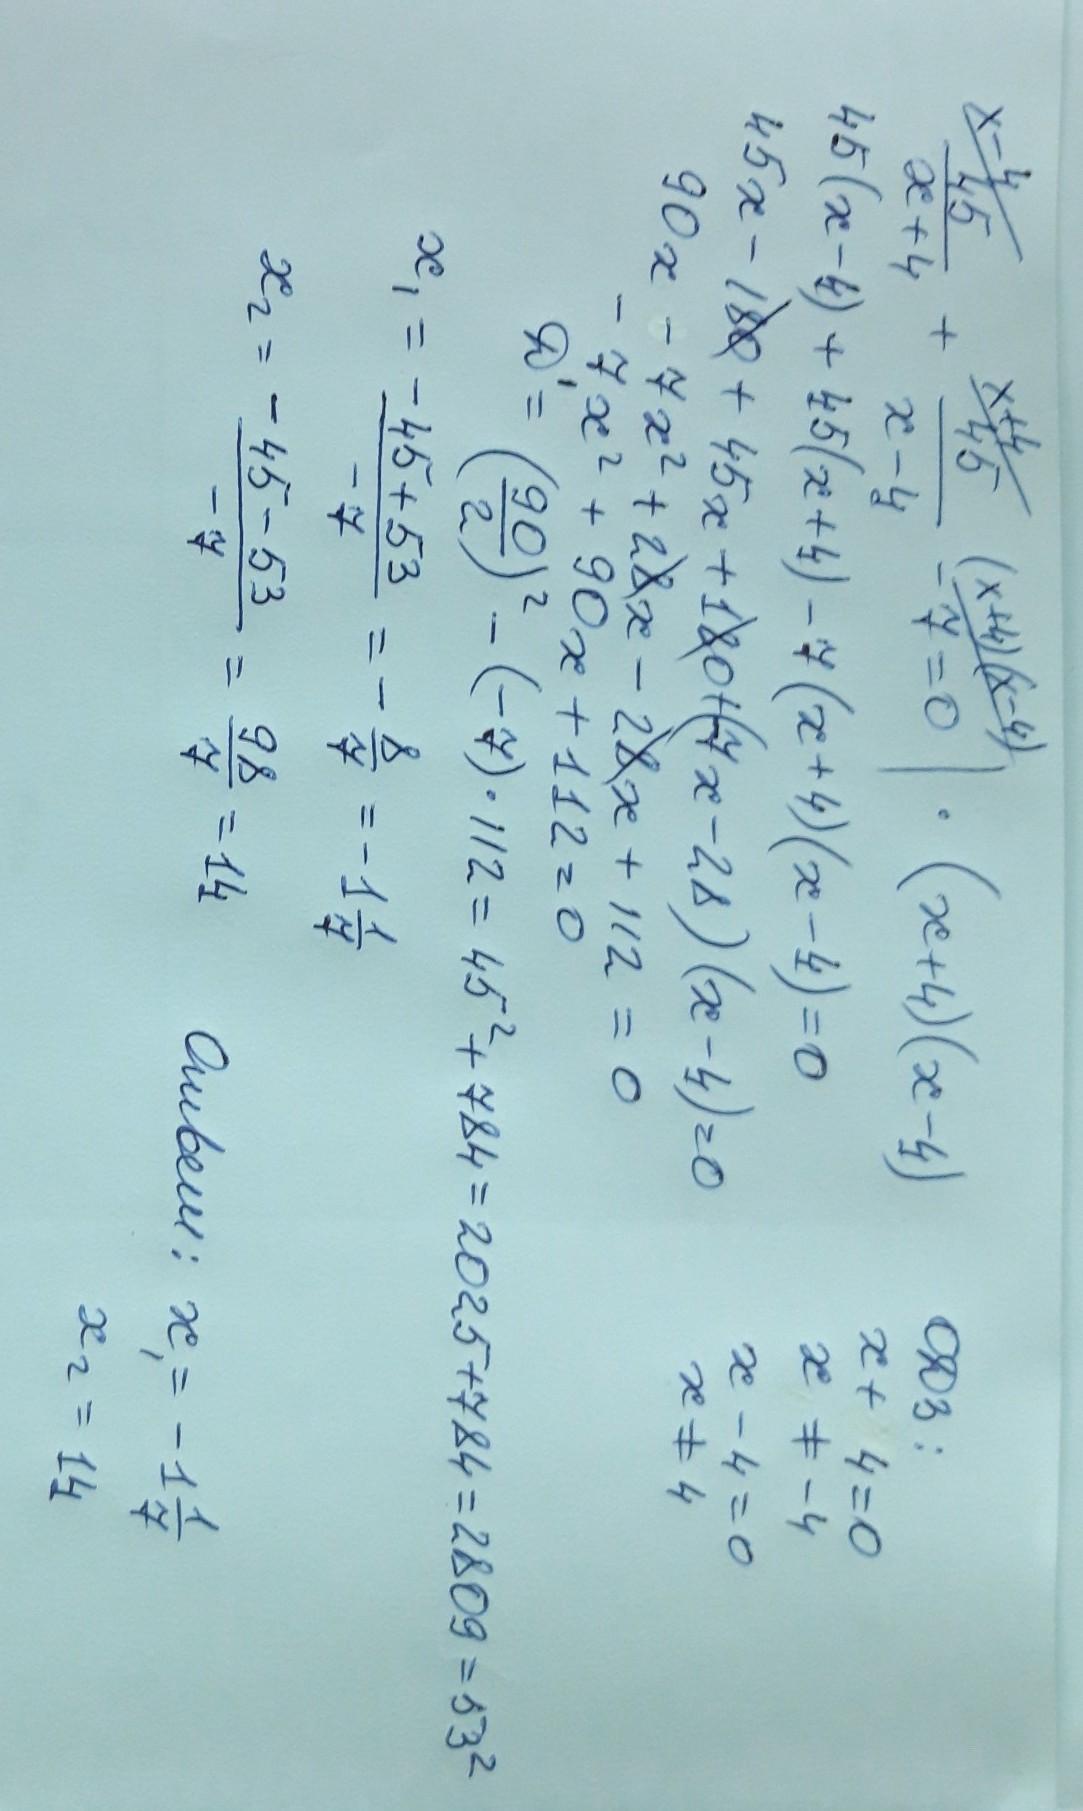 x-4 x+4 (x+4)(x-4)
45/(x+4) + 45/(x-4) - 7 = 0 | · (x+4)(x-4)
45(x-4) + 45(x+4) - 7(x+4)(x-4) = 0
45x - 180 + 45x + 180 + (7x - 28)(x-4) = 0
90x - 7x² + 28x - 28x + 112 = 0
- 7x² + 90x + 112 = 0
D' = (90/2)² - (-7)·112 = 45² + 784 = 2025 + 784 = 2809 = 53²
x₁ = (-45+53)/-7 = -8/7 = -1 1/7
x₂ = (-45-53)/-7 = 98/7 = 14
ОДЗ:
x + 4 = 0
x ≠ -4
x - 4 = 0
x ≠ 4
Ответ: x₁ = -1 1/7
x₂ = 14